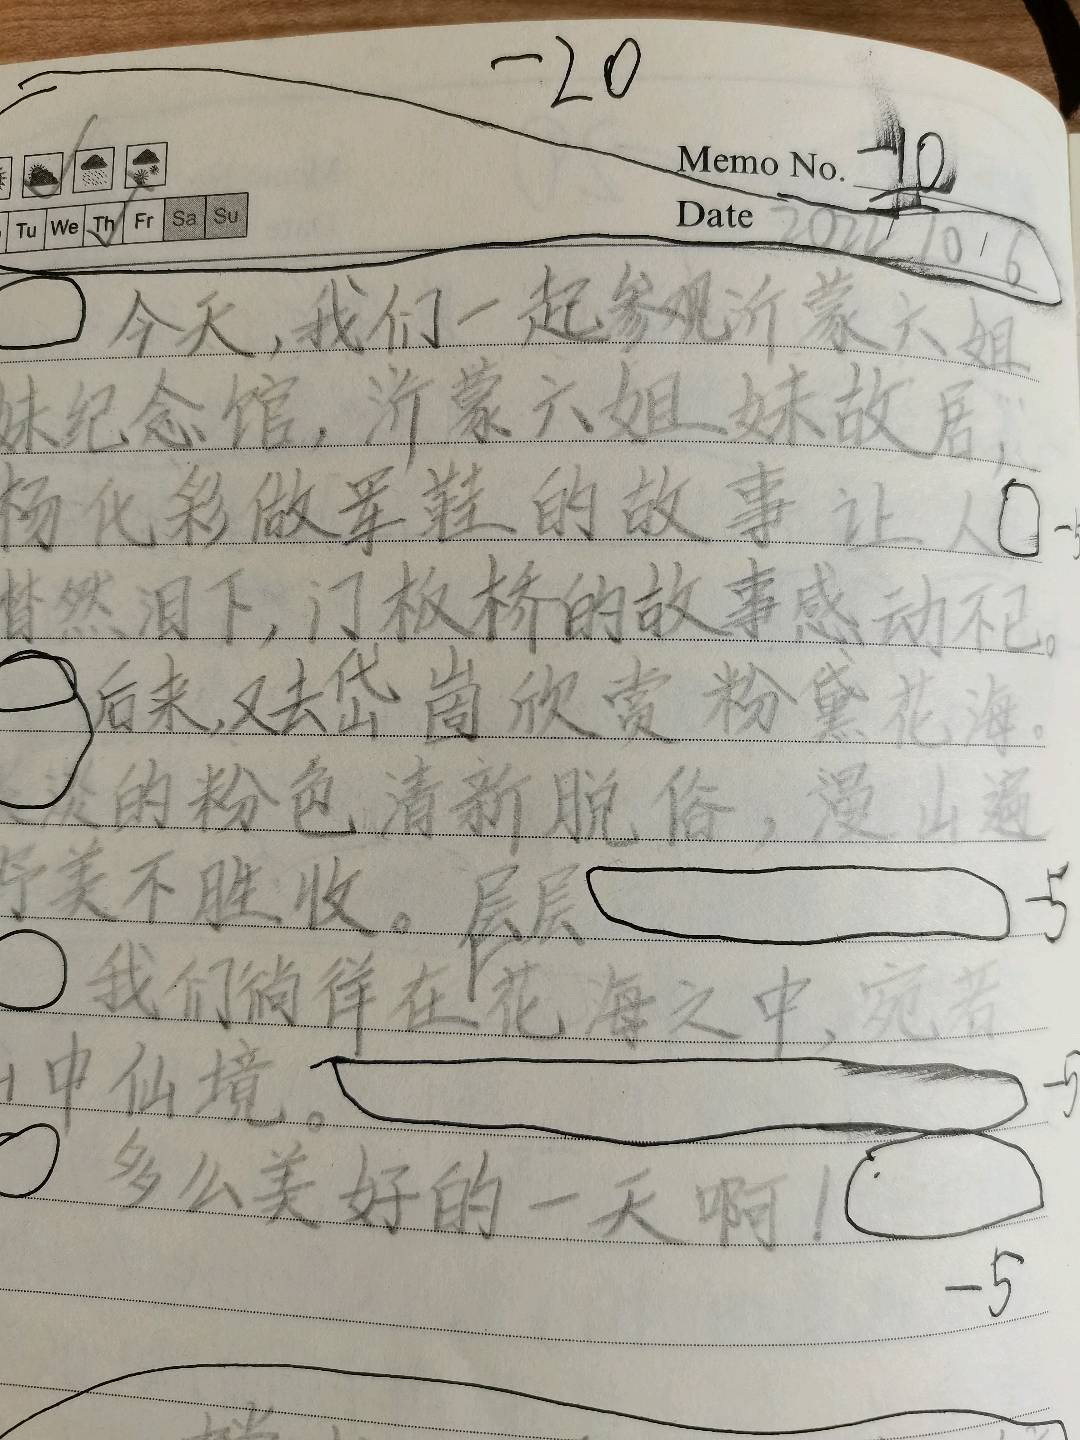 -20
Memo No. -10
Tu We Th Fr Sa Su
Date 2022 10 6
今天,我们一起参观沂蒙六姐
妹纪念馆,沂蒙六姐妹故居,
杨化彩做军鞋的故事让人
-5
潸然泪下,门板桥的故事感动不已。
后来,又去岱崮欣赏粉黛花海。
淡淡的粉色清新脱俗,漫山遍
野美不胜收。层层
-5
我们徜徉在花海之中,宛若
中仙境。
-5
多么美好的一天啊!
-5